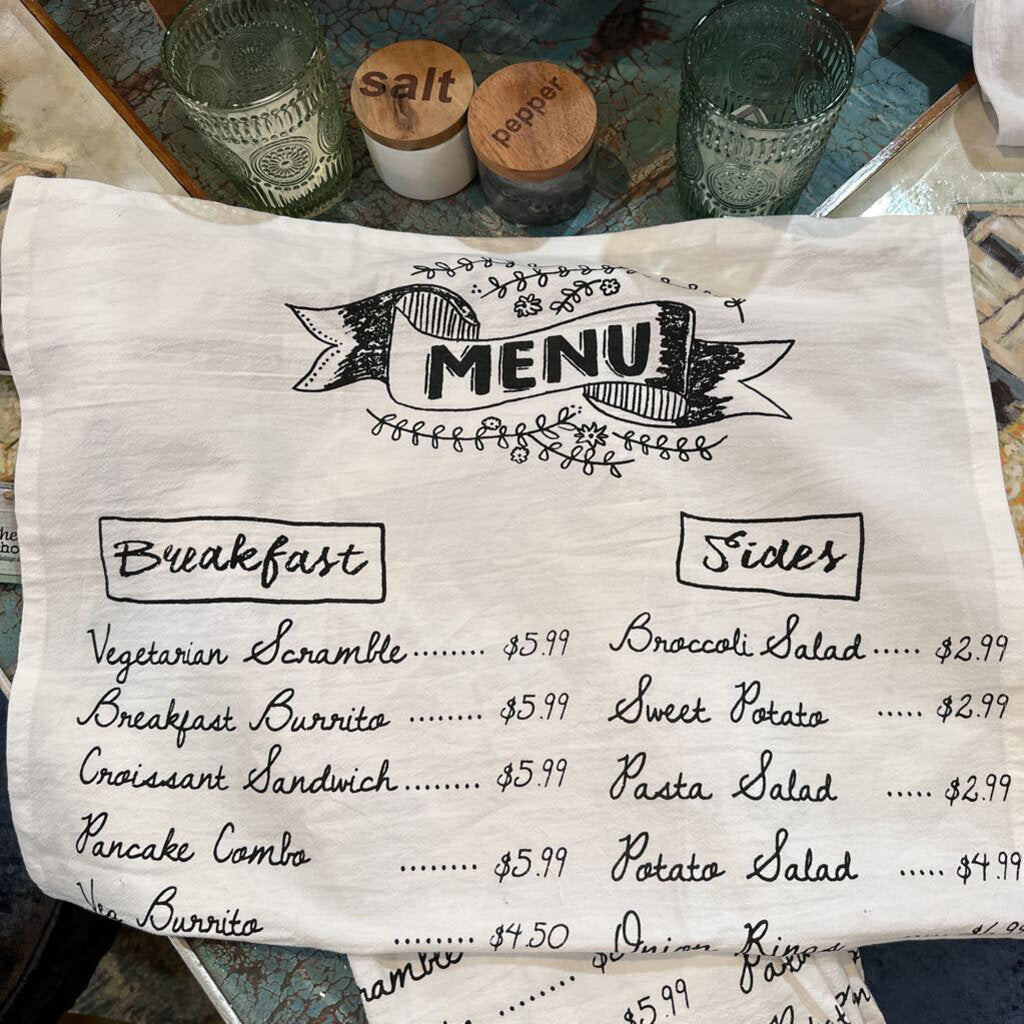 salt
pepper
MENU
Breakfast
Vegetarian Scramble ........ $5.99
Breakfast Burrito ........ $5.99
Croissant Sandwich ........ $5.99
Pancake Combo ........ $5.99
Veg Burrito ........ $4.50
Sides
Broccoli Salad ..... $2.99
Sweet Potato ..... $2.99
Pasta Salad ..... $2.99
Potato Salad ..... $4.99
Onion Rings
$5.99